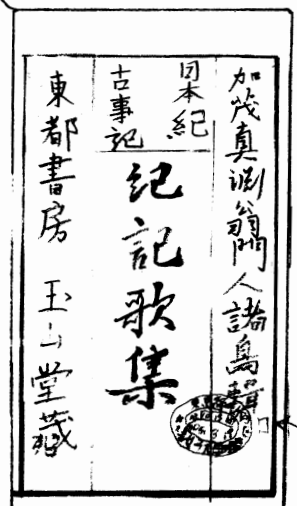 加茂真淵翁門人諸鳥
日本紀
古事記
紀記歌集
東都書房 玉山堂